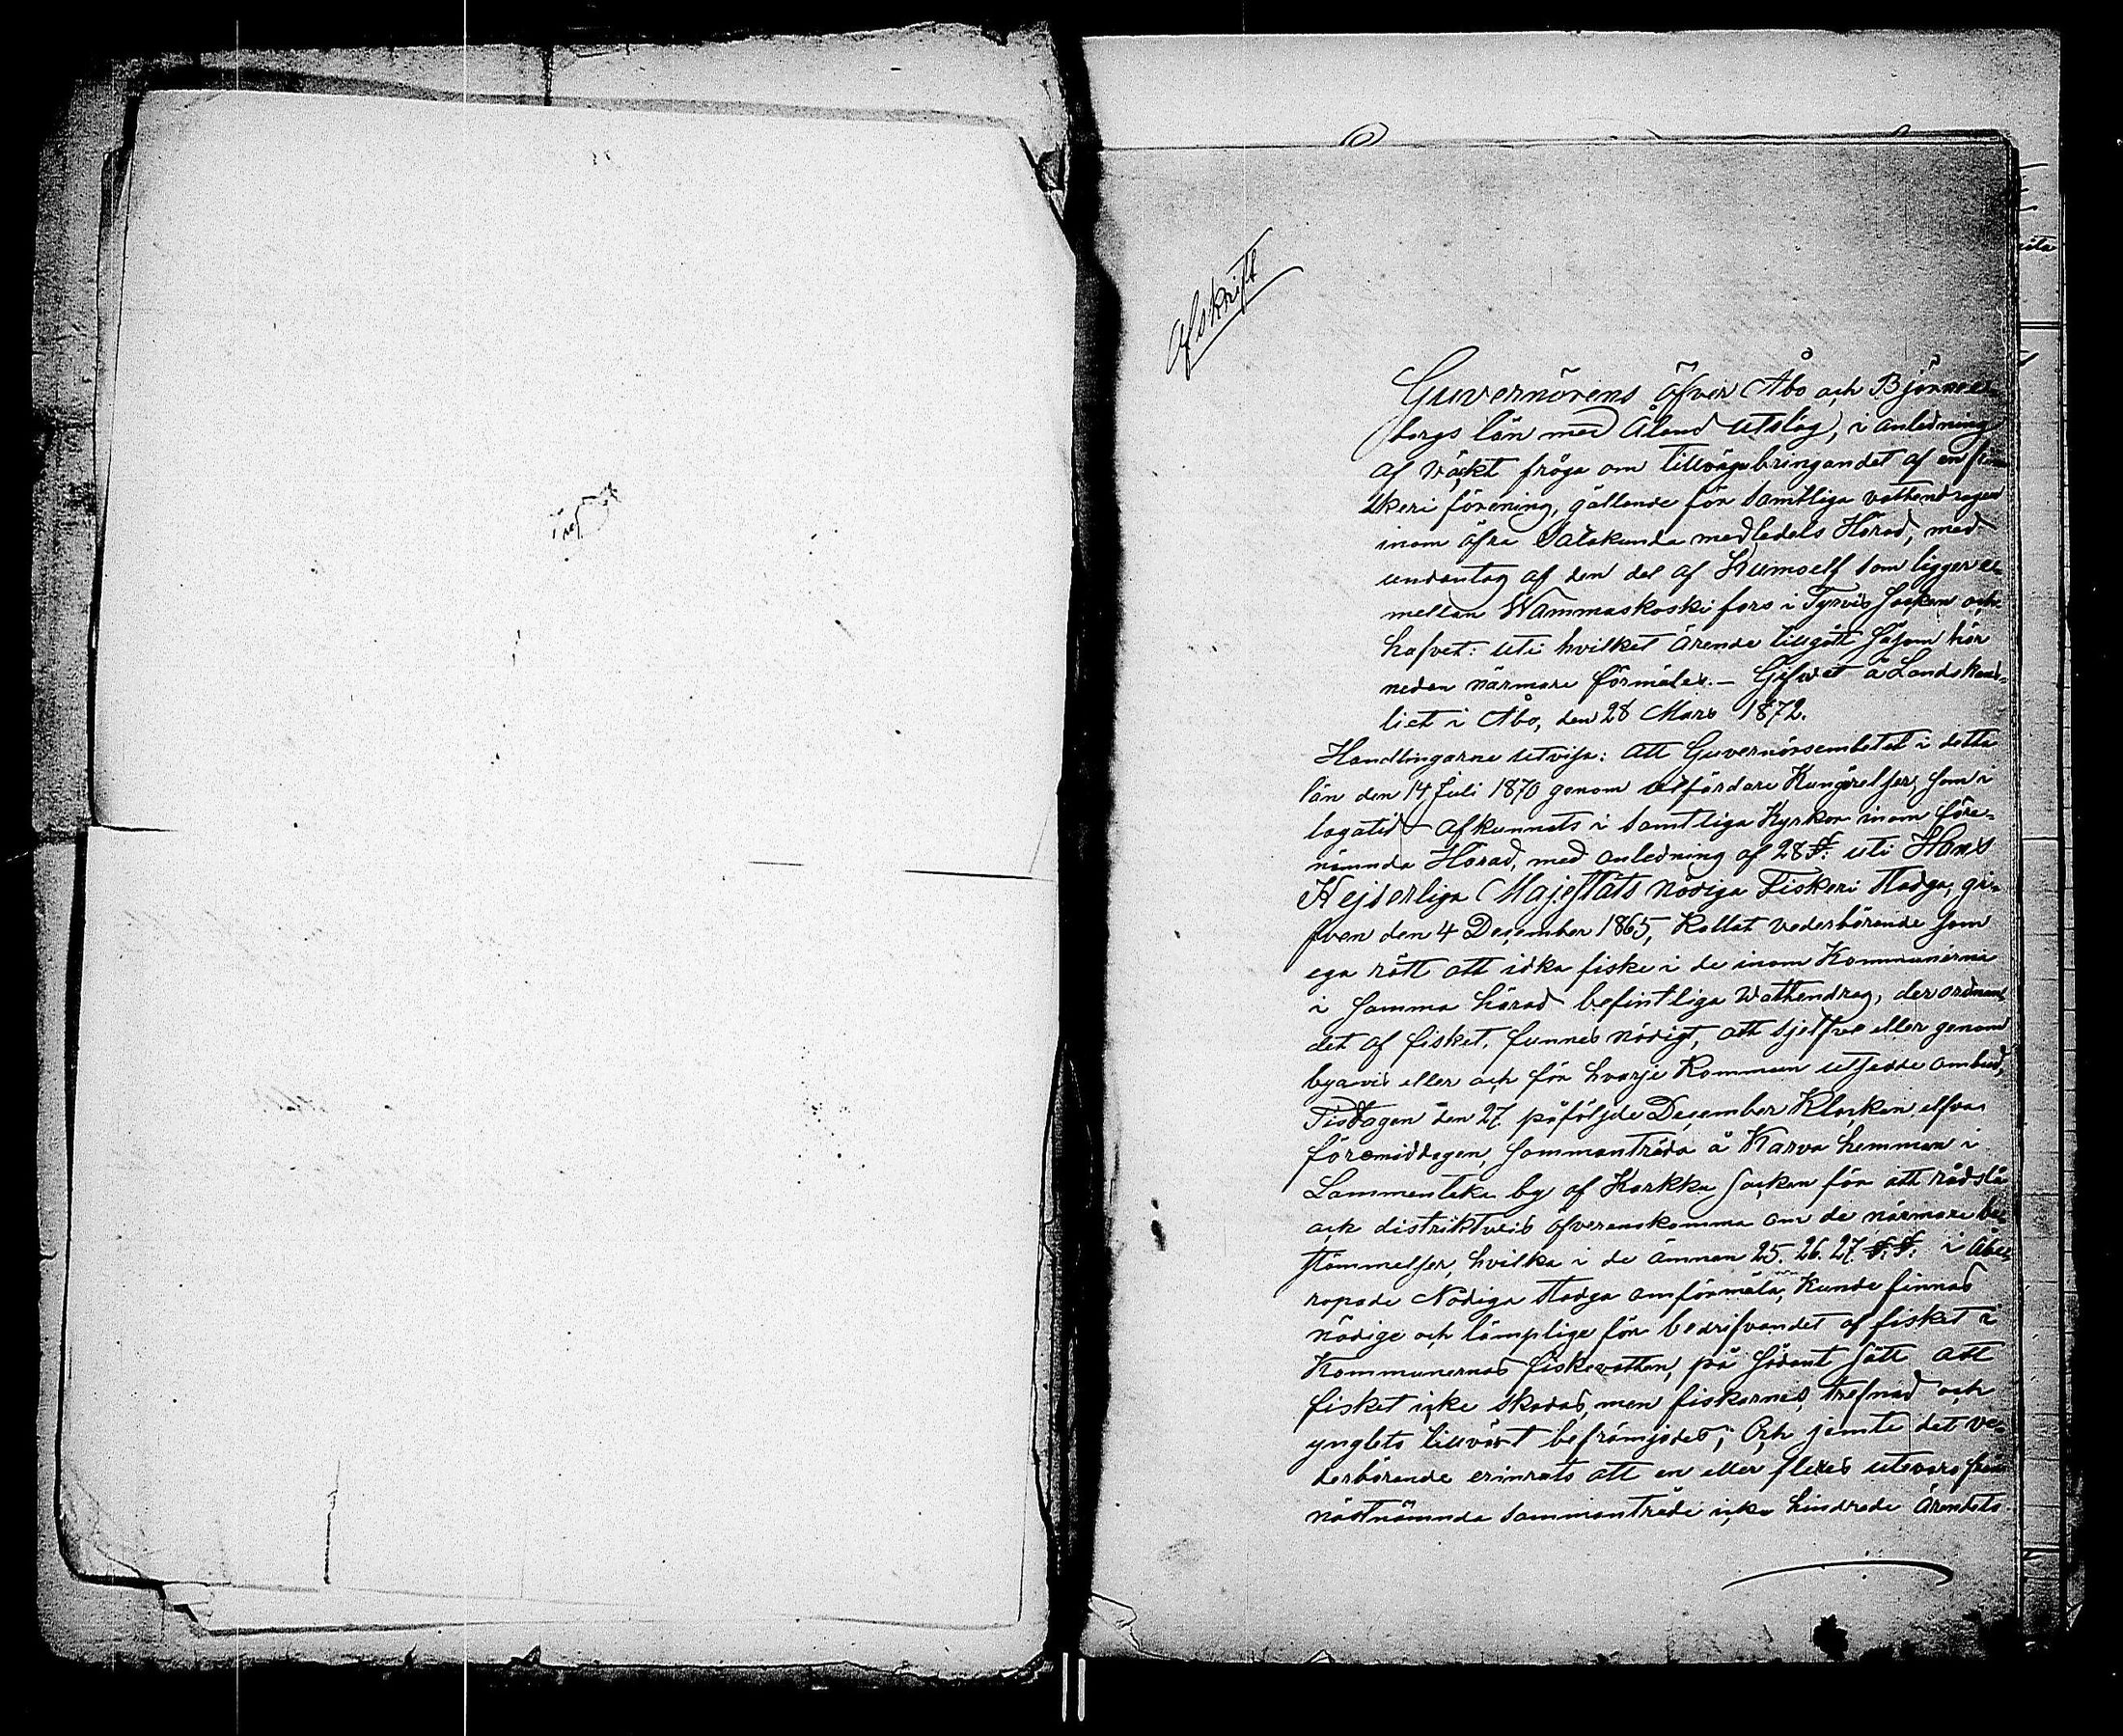 Afskrift
Guvernörens öfver Åbo och Björne-
borgs län med Åland utslag, i anledning
af väckt fråga om tillvägabringandet af en fi-
skeri förening, gällande för samtliga vattendragen
inom öfra Satakunda medledels Härad, med
undantag af den del af Kumoelf som ligger e-
mellan Wammaskoski fors i Tyrvis Socken och
hafvet: uti hvilket ärende tillgått såsom här
nedan närmare förmäles. — Gifvet å Landskans-
liet i Åbo, den 28 Mars 1872.
Handlingarne utvisa: att Guvernörsembetet i detta
län den 14 Juli 1870 genom utfärdare Kungörelser, som i
lagatid afkunnats i samtliga Kyrkor inom före-
nämnda Härad, med anledning af 28 §. uti Hans
Kejserliga Majestäts Nådiga Fiskeri Stadga, gi-
fven den 4 December 1865, Kallat vederbörande som
ega rätt att idka fiske i de inom Kommunerna
i samma härad befintliga Wattendrag, der ordnan-
det af fisket funnes nödigt, att sjelfve eller genom
byavis eller och för hvarje Kommun utsedde ombud,
Tisdagen den 27 påföljde December Klockan elfva
föremiddagen, sammanträda å Karva hemman i
Lammentaka by af Karkku Socken för att rådslå
och distriktvis öfverenskomma om de närmare be-
stämmelser, hvilka i de ämnen 25. 26. 27. §.§. i åbe-
ropade Nådiga Stadga omförmäla, Kunde finnas
nödige och lämplige för bedrifvandet af fisket i
Kommunernas fiskevatten, på sådant sätt att
fisket icke skadas, men fiskarnes trefnad och
ynglets tillväxt befrämjades; Och jemte det ve-
derbörande erinrats att en eller fleres utevaro från
nästnämnda sammanträde icke hindrade ärendets